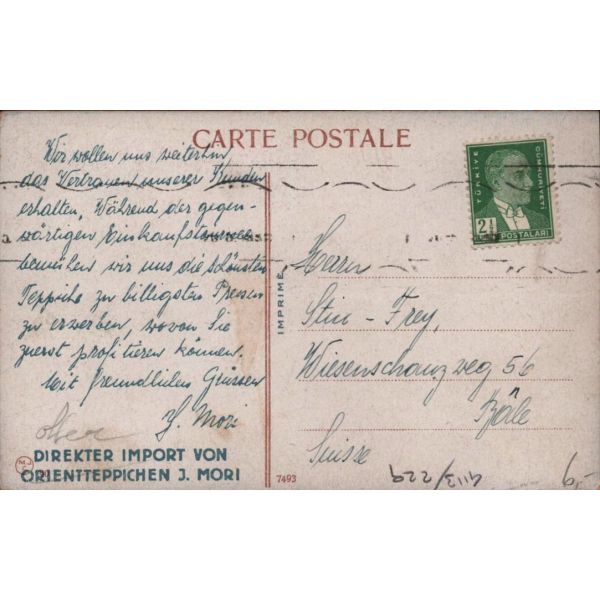 CARTE POSTALE
Wir wollen uns weiterhin
das Vertrauen unserer Kunden
erhalten. Während der gegen-
wärtigen Einkaufstournee
bemühen wir uns die schönsten
Teppiche zu billigsten Preisen
zu erwerben, wovon Sie
zuerst profitieren können.
Mit freundlichen Grüssen
J. Mori
DIREKTER IMPORT VON
ORIENTTEPPICHEN J. MORI
MJ
IMPRIMÉ
7493
TÜRKİYE
CÜMHURİYETİ
2½
POSTALARI
Herrn
Frey,
Wiesenschanzweg 56
Bâle
Suisse
4113/229
6,-